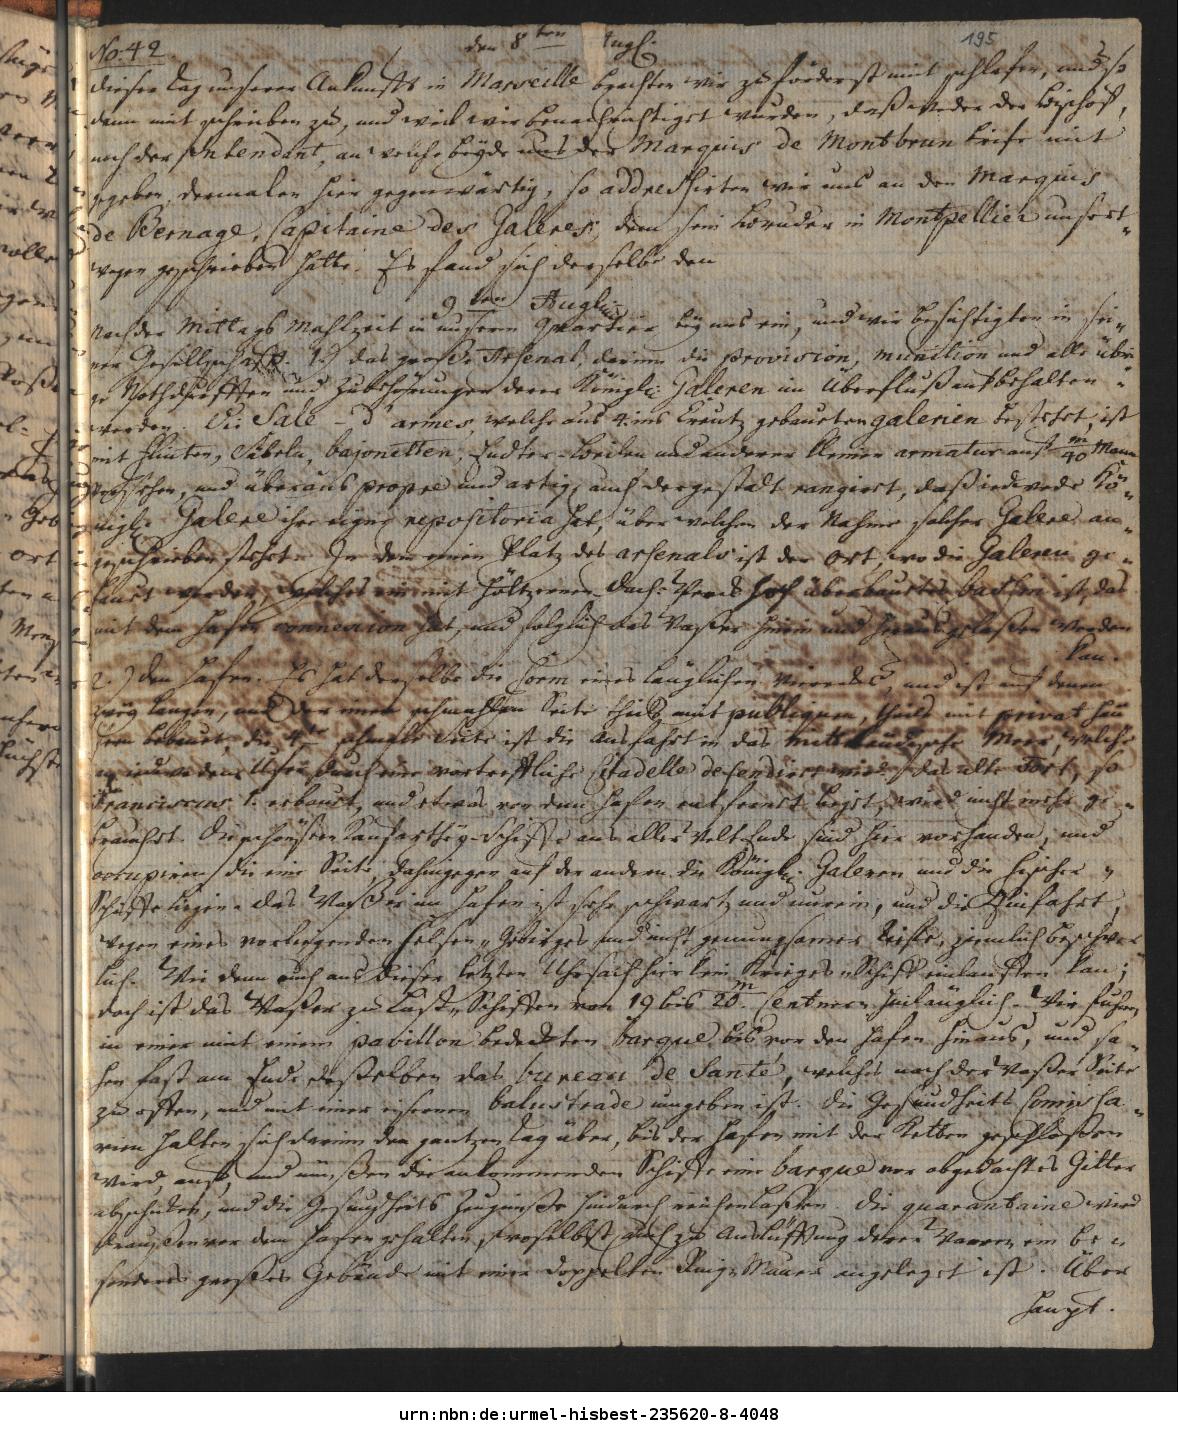 No. 42. den 8ten Augl. 195
dieser Tag unserer Ankunfft in Marseille brachten wir zuförderst mit schlafen, und so
dann mit schreiben zu, und weil wir benachrichtiget wurden, daß weder der Bischoff,
noch der Intendant, an welche beyde uns der Marquis de Montbrun briefe mit
gegeben, dermalen hier gegenwärtig, so addressirten wir uns an den Marquis
de Bernage, Capitaine des Galeres, dem sein Bruder in Montpellier unsert-
wegen geschrieben hatte. Es fand sich derselbe den
9ten Augl.
nach der Mittags Mahlzeit in unserm Quartier bey uns ein, und wir besichtigten in sei-
ner Gesellschafft 1.) das große Arsenal, darinn die provision, munition und alle übri-
ge Nothdurfften und Zubehörungen derer Königl. Galeren im Überfluß aufbehalten
werden. Die Sale d'armes, welche aus 4. ins Creutz gebauten galerien bestehet, ist
mit Flinten, Säbeln, bajonetten, und anderer kleinen armatur auf 40 m Mann
versehen, und überaus propre und artig, auch dergestalt rangiert, daß iedwede Kö-
nigl. Galere ihre eigne repositoria hat, über welchen der Nahme solcher Galere an-
geschrieben stehet. In dem einen Platz des arsenals ist der Ort, wo die Galeren ge-
baut werden, welches ein mit höltzernen Dach-Werck hoch überbautes bassin ist, das
mit dem Hafen connexion hat, und folglich das Waßer hinein und heraus gelaßen werden
kan.
2.) den Hafen. Es hat derselbe die Form eines länglichen Vierecks, und ist auf denen
zwey langen, und der einen schmahlen Seite theils mit publiquen, theils mit privat Häu-
sern bebauet, die 4te schmale Seite ist die Ausfahrt in das mittelländische Meer, welche
an iedwedem Ufer durch eine vortreffliche Citadelle defendirt wird. Das alte Fort, so
Franciscus I. erbaut, und etwas von dem Hafen entfernt liegt, wird nicht mehr ge-
braucht. Die schönsten Kauffarthey-Schiffe aus aller Welt Ende sind hier vorhanden, und
occupiren die eine Seite, dahingegen auf der andern die Königl. Galeren und die Fischer-
Schiffe liegen. Das Waßer im Hafen ist sehr schwartz und unrein, und die Einfahrt,
wegen eines vorliegenden Felsen-Gebirges und nicht genungsamer Tieffe, ziemlich beschwer
lich. Wie denn auch aus dieser letzten Uhrsach hier kein Krieges-Schiff einlauffen kan;
doch ist das Waßer zu Last-Schiffen von 19 bis 20 m. Centnern hinlänglich. Wir fuhren
in einer mit einem pavillon bedeckten barque bis vor den Hafen hinaus, und sa-
hen fast am Ende deßelben das bureau de Santé, welches nach der Waßer Seite
zu offen, und mit einer eisernen balustrade umgeben ist. Die Gesundheits Commissa-
rien halten sich darinn den gantzen Tag über, bis der Hafen mit der Ketten geschloßen
wird, auf, und müßen die ankommenden Schiffe eine barque vor abgedachtes Gitter
abschicken, und die Gesundheits Zeugnisse hindurch reichen laßen. Die quarantaine wird
draußen vor dem Hafen gehalten, woselbst auch zu Auslüfftung derer Waaren ein be-
sonderes großes Gebäude mit einer doppelten Ring-Mauer angeleget ist. Über
haupt.
urn:nbn:de:urmel-hisbest-235620-8-4048